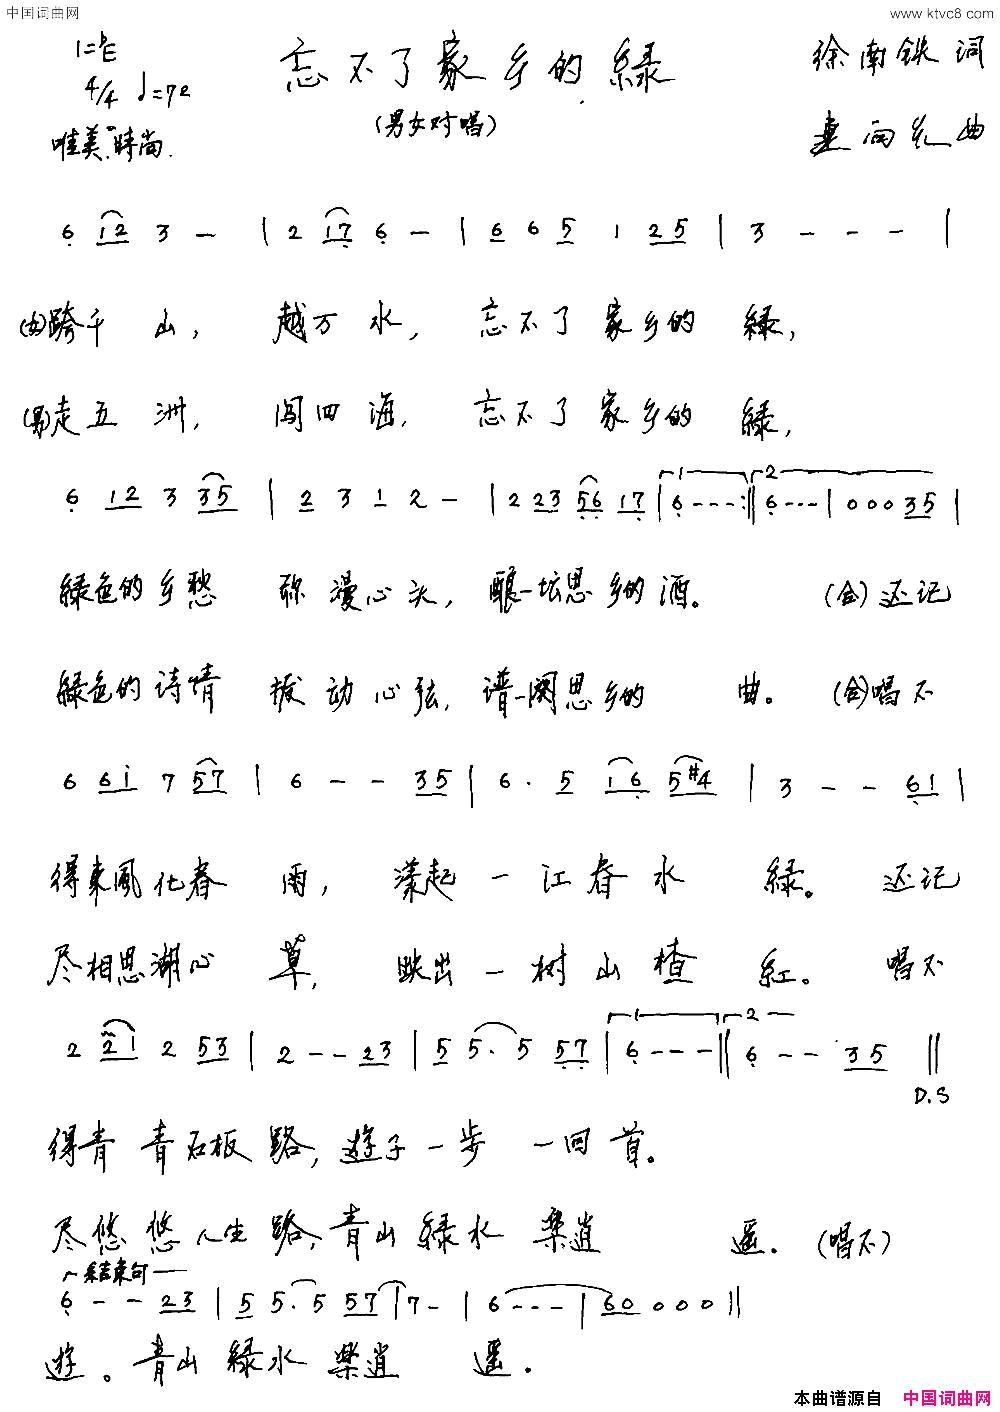 中国词曲网 www.ktvc8.com
1=♭E
忘不了家乡的緑
徐南铁 词
4/4 ♩=72
(男女对唱)
唯美、時尚.
曲
6 12 3 － | 2 17 6 － | 6 6 5 1 25 | 3 － － － |
(女)跨千 山, 越万 水, 忘不了 家乡的 緑,
(男)走五 洲, 闯四 海, 忘不了 家乡的 緑,
6 12 3 35 | 2 3 1 2 － | 2 23 56 17 | 6 - - - :|| 6 - - - | 0 0 0 35 |
緑色的乡愁 弥漫心头, 酿一坛思乡的酒。 (合)还记
緑色的诗情 拨动心弦, 谱一阕思乡的 曲。 (合)唱不
6 61 7 57 | 6 － － 35 | 6 . 5 16 5#4 | 3 － － 61 |
得東風化春 雨, 漾起一江春水 緑。 还记
尽相思湖心 草, 映出一树山楂 紅。 唱不
2 21 2 53 | 2 - - 23 | 5 5. 5 57 | 6 - - - || 6 - - 35 ||
D.S
得青 青石板 路, 遊子一步 一回首。
尽悠悠人生路, 青山緑水 樂逍 遥。(唱不)
結束句
6 - - 23 | 5 5. 5 57 | 7 - | 6 - - - | 60 0 0 0 ||
遊。青山緑水 樂逍 遥.
本曲谱源自 中国词曲网